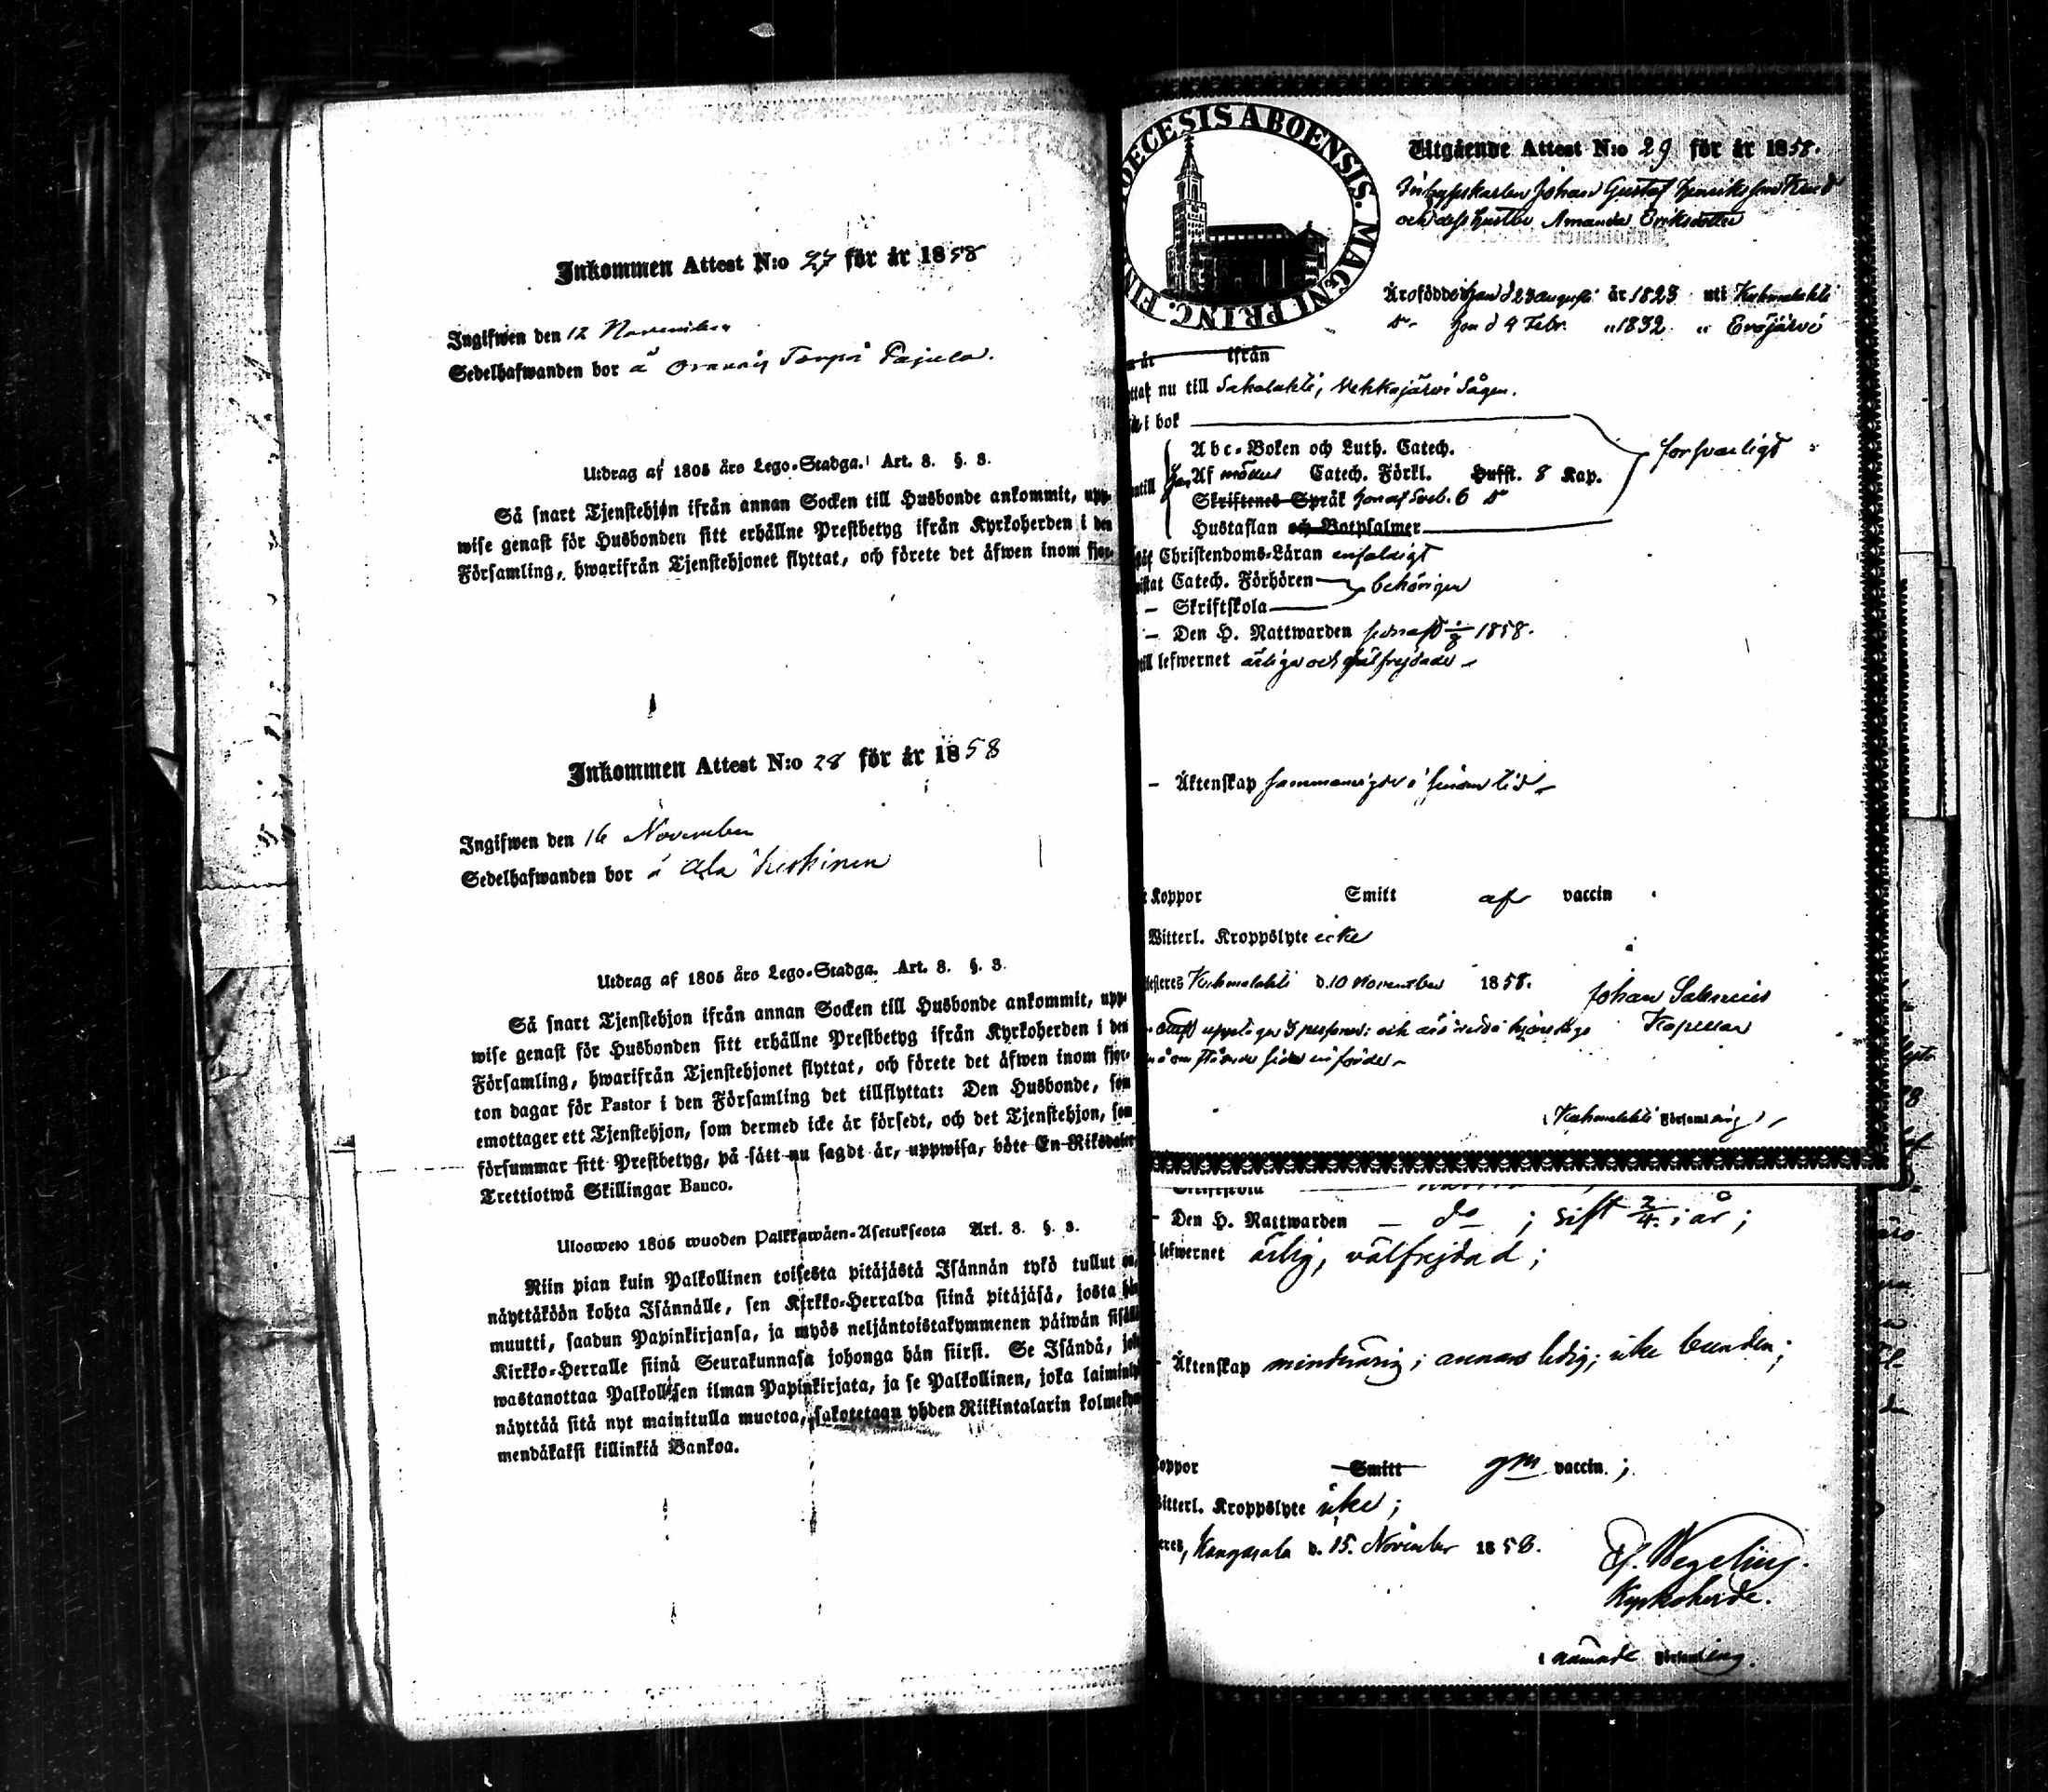 Inkommen Attest N:o 27 för år 1858
Ingifwen den 12 November
Sedelhafwanden bor å Torpå Pajula.
Utdrag af 1805 års Lego-Stadga. Art. 8. §. 3.
Så snart Tjenstehjon ifrån annan Socken till Husbonde ankommit, upp-
wise genast för Husbonden sitt erhållne Prestbetyg ifrån Kyrkoherden i den
Församling, hwarifrån Tjenstehjonet flyttat, och förete det äfwen inom fjor-
Inkommen Attest N:o 28 för år 1858
Ingifwen den 16 November
Sedelhafwanden bor å Ala Keskinen
Utdrag af 1805 års Lego-Stadga. Art. 8. §. 3.
Så snart Tjenstehjon ifrån annan Socken till Husbonde ankommit, upp-
wise genast för Husbonden sitt erhållne Prestbetyg ifrån Kyrkoherden i den
Församling, hwarifrån Tjenstehjonet flyttat, och förete det äfwen inom fjor-
ton dagar för Pastor i den Församling det tillflyttat: Den Husbonde, som
emottager ett Tjenstehjon, som dermed icke är försedt, och det Tjenstehjon, som
försummar sitt Prestbetyg, på sätt nu sagdt är, uppwisa, böte En Riksdaler
Trettiotwå Skillingar Banco.
Uloswete 1805 wuoden Palkkawäen-Asetuksesta Art. 8. §. 3.
Niin pian kuin Palkollinen toisesta pitäjästä Isännän tykö tullut on,
näyttäköön kohta Isännälle, sen Kirkko-Herralda siinä pitäjäsä, josta hän
muutti, saadun Papinkirjansa, ja myös neljäntoistakymmenen päiwän sisällä
Kirkko-Herralle siinä Seurakunnasa johonga hän siirst. Se Isändä, joka
wastanottaa Palkollisen ilman Papinkirjata, ja se Palkollinen, joka laiminlyö
näyttää sitä nyt mainitulla muotoa, sakotetaan yhden Riikintalarin kolmekym-
mendäkaksi killinkiä Bankoa.
DIOECESIS ABOENSIS. MAGNI PRINC. FIN
Utgående Attest N:o 29 för år 1858.
Inhyseskarlen Johan Gustaf Henriksson
och dess hustru Amanda Eriksdotter
Äro födde han d 23 augusti år 1823 uti Kuhmalahti
D:o hon d 4 Febr. " 1832 " Eräjärvi
år ifrån
nu till Sahalahti, Vehkajärvi Sågen.
i bok
Abc-Boken och Luth. Catech.
Af Catech. Förkl. Husst. 8 Kap. försvarligt
Skriftenes Språk Sveb. 6 D:o
Hustaflan och Botpsalmer
Christendoms-Läran enfaldigt
Catech. Förhören behörigen
– Skriftskola
– Den H. Nattwarden senast 1858.
till lefwernet ärliga och välfrejdade
– Äktenskap sammanvigde i sinom tid
Koppor Smitt af vaccin
Witterl. Kroppslyte icke
Kuhmalahti d. 10 November 1858. Johan Salenius
Kapellan
i Kuhmalahti Församling
Skriftskola
– Den H. Nattwarden – d:o ; sist 2/4 i år ;
lefwernet ärlig, välfrejdad ;
– Äktenskap minderårig ; annars ledig ; icke bunden ;
Koppor Smitt gm vaccin ;
Witterl. Kroppslyte icke ;
Kangasala d. 15. November 1858.
Wegelius.
Kyrkoherde.
i nämnde Församling.